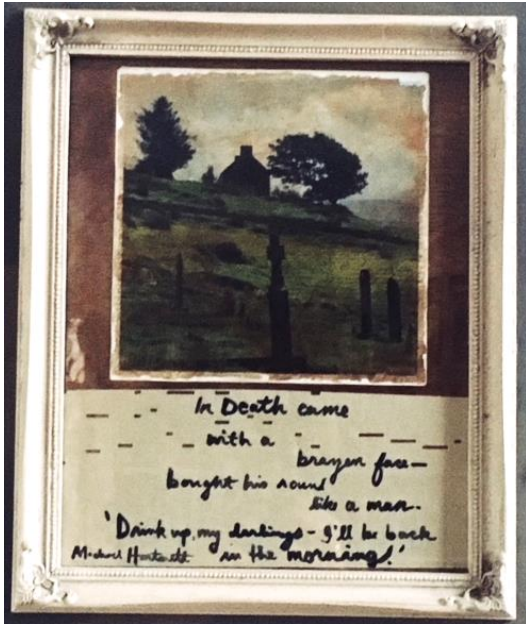 In Death came
with a
brazen face—
bought his round
like a man.
'Drink up, my darlings - I'll be back
in the morning!'
Michael Hartnett